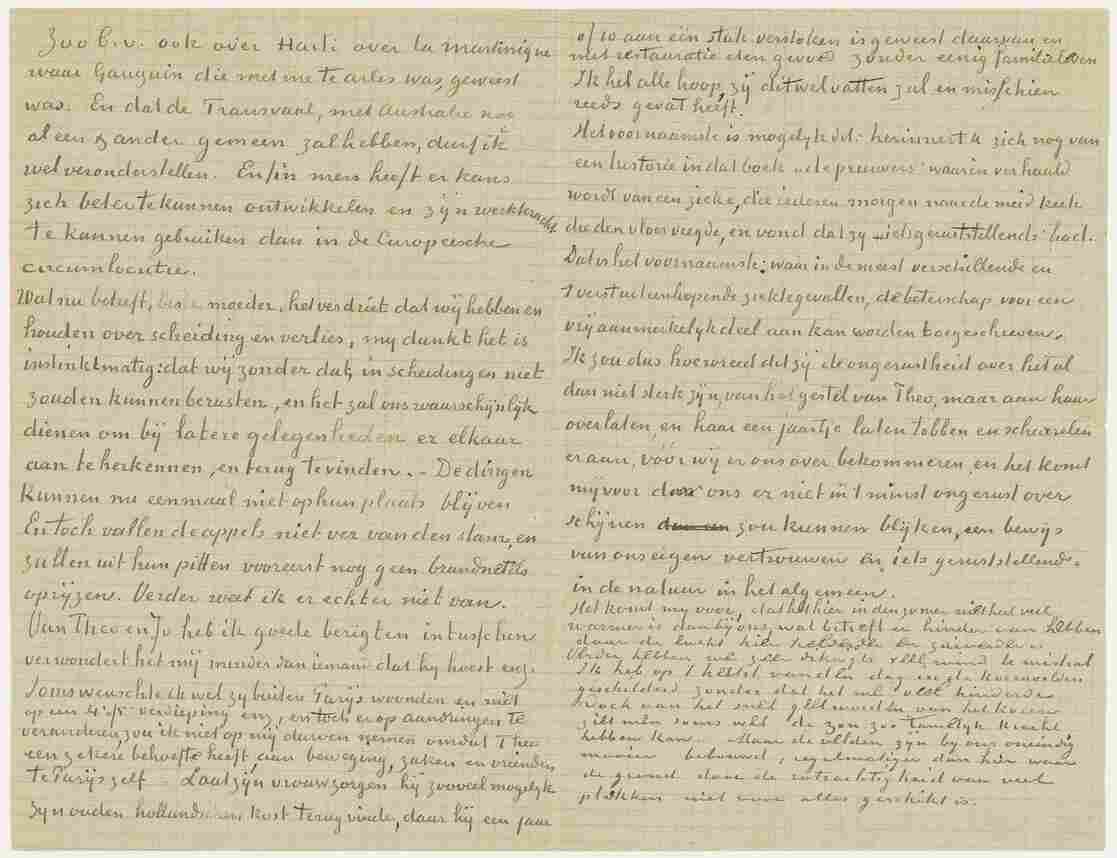 Zoo b.v. ook over Haiti over la Martinique
waar Gauguin die met me te Arles was, geweest
was. En dat de Transvaal, met Australie nog
al een & ander gemeen zal hebben, durf ik
wel veronderstellen. Enfin men heeft er kans
zich beter te kunnen ontwikkelen en zyn werkkracht
te kunnen gebruiken dan in de Europeesche
circumlocutie.
Wat nu betreft, beste moeder, het verdriet dat wij hebben en
houden over scheiding en verlies, my dunkt het is
instinktmatig: dat wij zonder dat, in scheidingen niet
zouden kunnen berusten, en het zal ons waarschijnlijk
dienen om bij latere gelegenheden er elkaar
aan te herkennen, en terug te vinden. – De dingen
kunnen nu eenmaal niet op hun plaats blijven
En toch vallen de appels niet ver van den stam, en
zullen uit hun pitten vooreerst nog geen brandnetels
opryzen. Verder weet ik er echter niet van.
Van Theo en Jo heb ik goede berigten intusschen
verwondert het mij minder dan iemand dat hy hoest enz.
Soms wenschte ik wel zy buiten Parys woonden en niet
op een 4e, 5e verdieping enz, en toch er op aandringen te
veranderen, zou ik niet op mij durven nemen omdat Theo
een zekere behoefte heeft aan beweging, zaken en vrienden
te Parijs zelf – Laat zyn vrouw zorgen hij zooveel mogelyk
zyn ouden hollandschen kost terug vinde, daar hij een jaar
of 10 aan een stuk verstoken is geweest daarvan en
met restauratie eten gevoed zonder eenig familieleven
Ik heb alle hoop, zij dit wel vatten zal en misschien
reeds gevat heeft.
Het voornaamste is mogelyk dit: herinnert U zich nog van
een historie in dat boek „de preuvers” waarin verhaald
wordt van een zieke, die iederen morgen naar de meid keek
die den vloer veegde, en vond dat zy „iets geruststellends” had.
Dat is het voornaamste: waar in de meest verschillende en
't verst uiteenloopende ziektegevallen, de beterschap voor een
vrij aanmerkelyk deel aan kan worden toegeschreven.
Ik zou dus hoewreed dit zij de ongerustheid over het al
dan niet sterk zijn, van het gestel van Theo, maar aan haar
overlaten, en haar een jaartje laten tobben en scharrelen
er aan, vóór wij er ons over bekommeren, en het komt
mij voor dat ons er niet in 't minst ongerust over
schijnen zou kunnen blijken, een bewijs
van ons eigen vertrouwen in iets geruststellends
in de natuur in het algemeen.
Het komt my voor, dat het hier in den zomer niet heel veel
warmer is dan by ons, wat betreft er hinder van hebben
daar de lucht hier helderder en zuiverder is
Verder hebben we zeer dikwyls veel wind de mistral
Ik heb op 't heetst van den dag in de korenvelden
geschilderd zonder dat het me veel hinderde
Doch aan het snel geel worden van het koren
ziet men soms wel de zon zoo tamelyk kracht
hebben kan. Maar de velden zijn by ons oneindig
mooier bebouwd, regelmatiger dan hier waar
de grond door de rotsachtigheid van veel
plekken niet voor alles geschikt is.